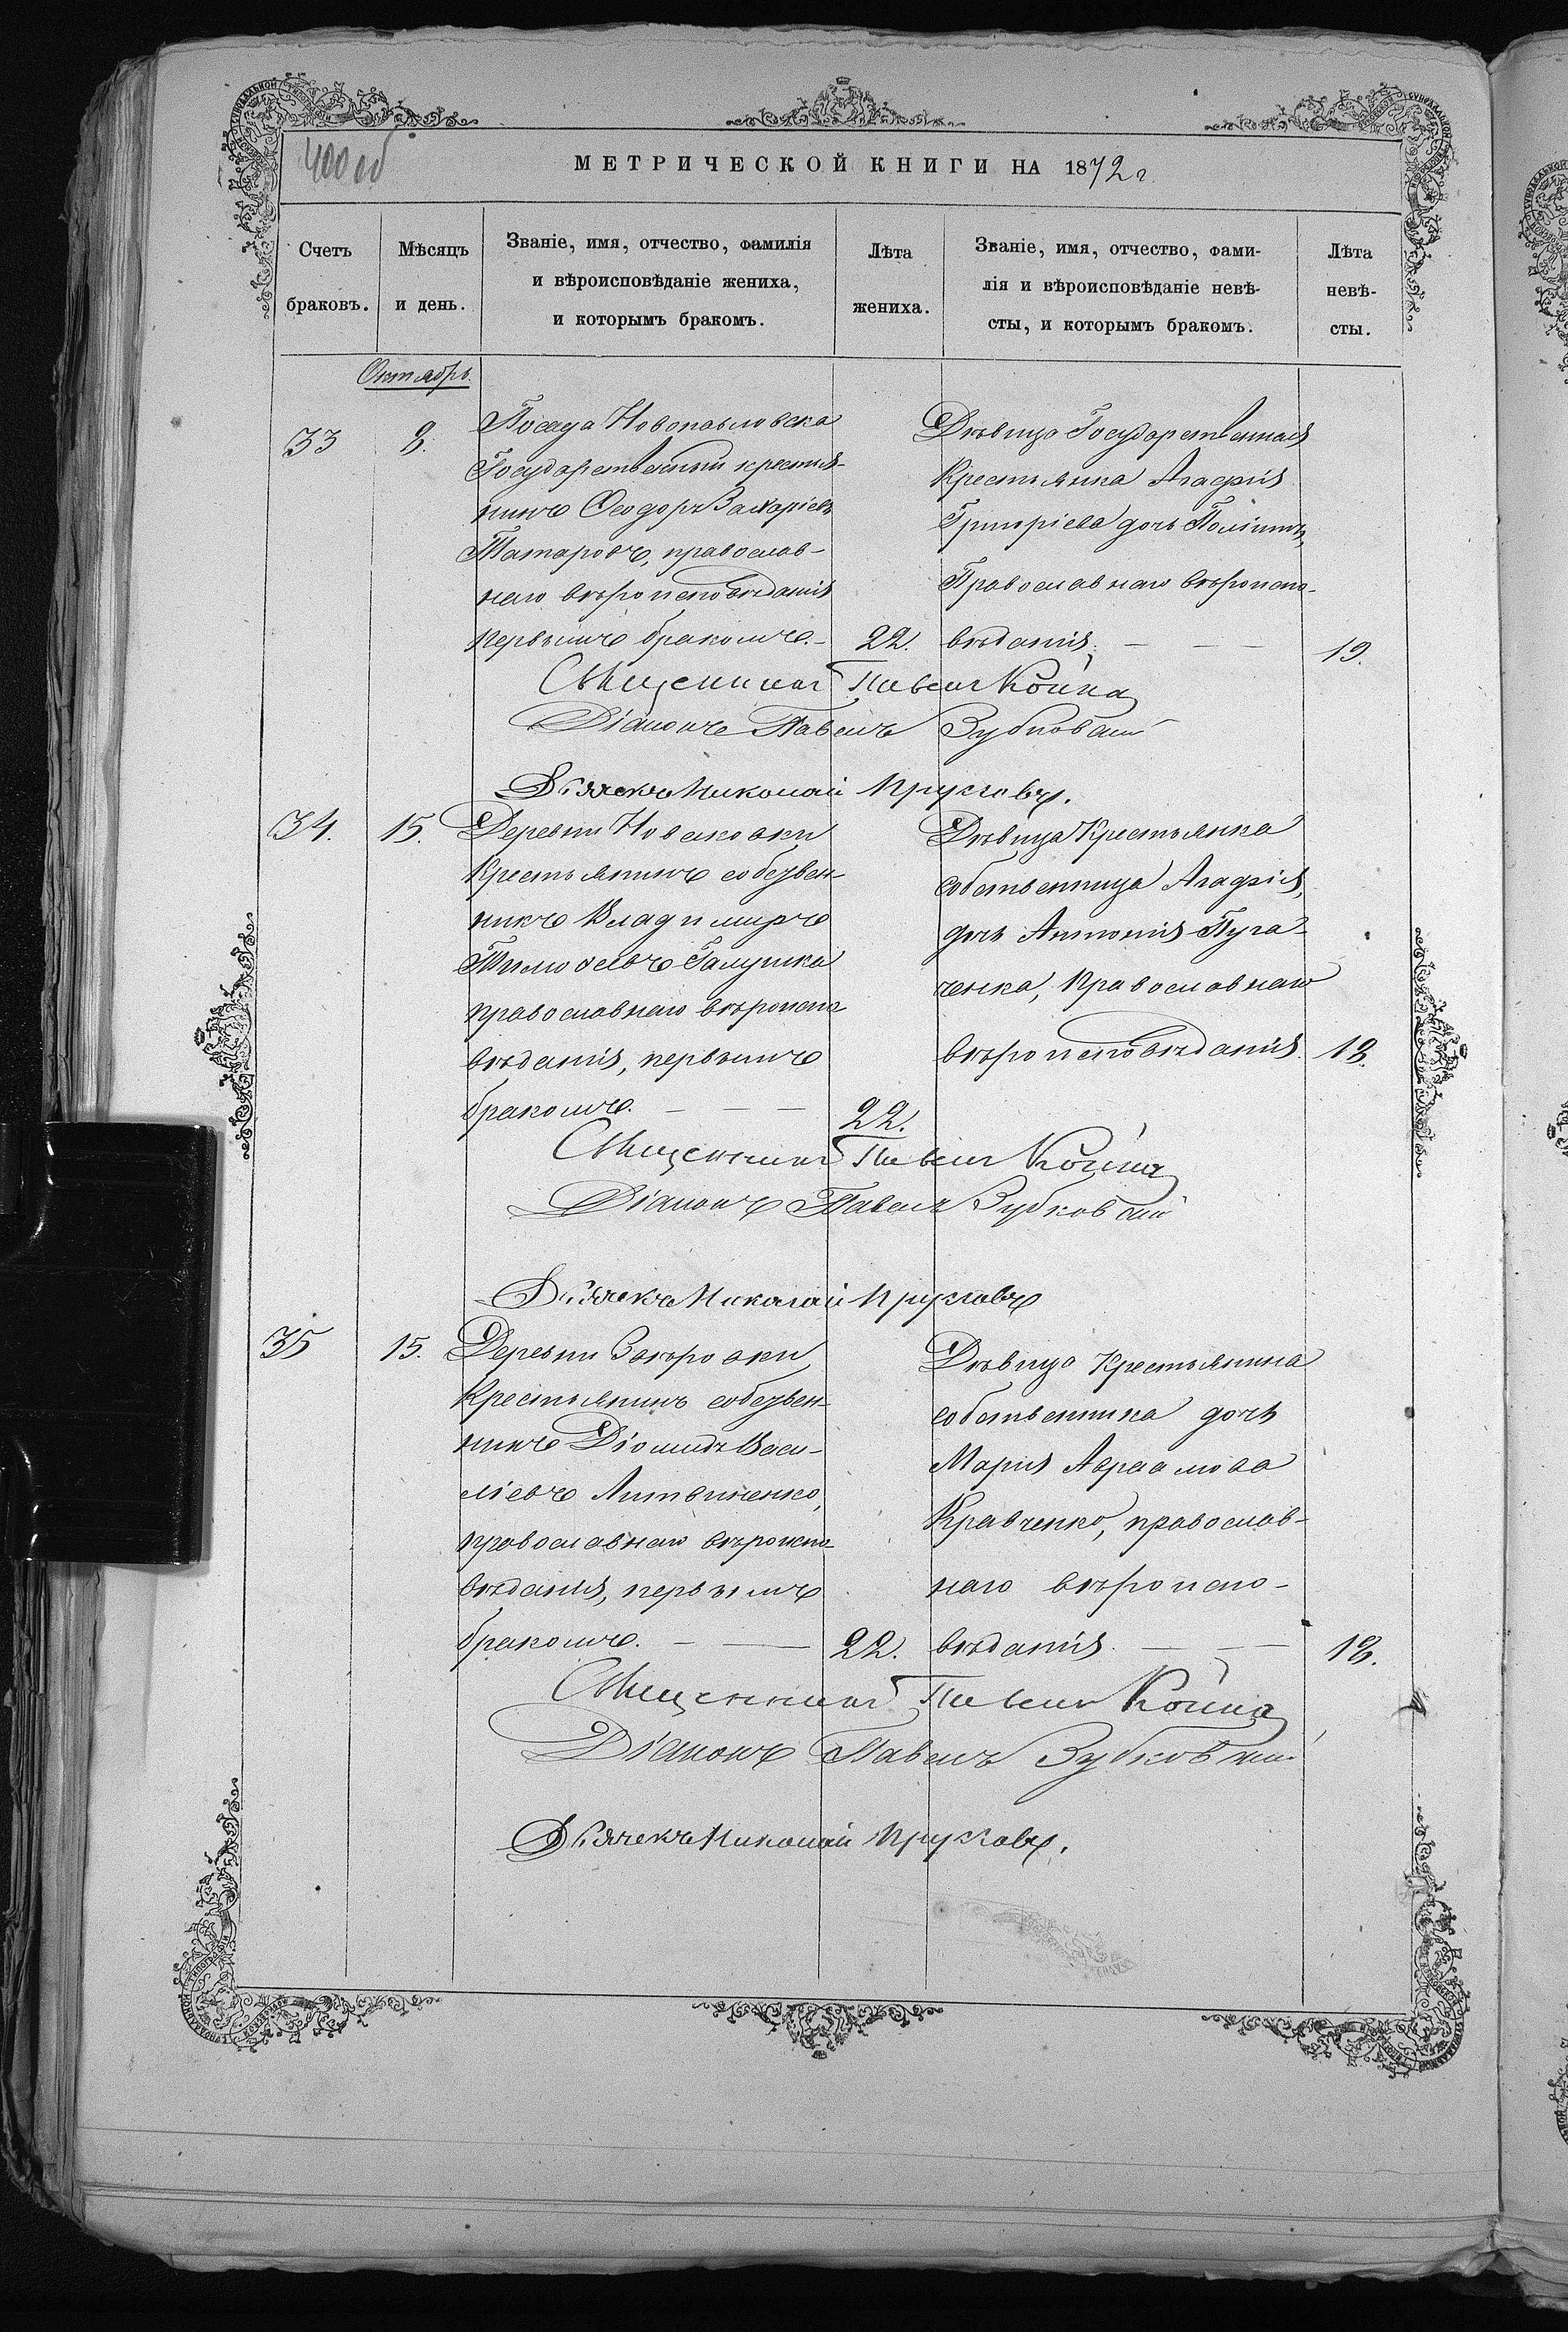 400 об
МЕТРИЧЕСКОЙ КНИГИ НА 1872 г.
Счетъ браковъ.
Мѣсяцъ и день.
Званіе, имя, отчество, фамилія
и вѣроисповѣданіе жениха,
и которымъ бракомъ.
Лѣта жениха.
Званіе, имя, отчество, фами-
лія и вѣроисповѣданіе невѣ-
сты, и которымъ бракомъ.
Лѣта невѣ-
сты.
Октябрь.
33
8.
Посада Новопавловска
Государственный крестья-
нинъ Ѳеодоръ Захаріевъ
Татаровъ, православ-
наго вѣроисповѣданія
первымъ бракомъ.
22.
Дѣвица Государственная
Крестьянка Агафія
Григоріева дочь
Православнаго вѣроиспо-
вѣданія.
19.
Священникъ Павелъ
Діаконъ Павелъ Зубковскій
Дьячекъ Николай Кругловъ.
34.
15.
Деревни Новаковки
Крестьянинъ собствен-
никъ Владимиръ
Тимоѳеевъ Галушка
православнаго вѣроиспо
вѣданія, первымъ
бракомъ.
22.
Дѣвица Крестьянка
собственница Агафія,
дочь Антонія Пуга-
ченка, Православнаго
вѣроисповѣданія.
18.
Священникъ Павелъ
Діаконъ Павелъ Зубковскій
Дьячекъ Николай Кругловъ
35
15.
Деревни
Крестьянинъ собствен-
никъ Діомидъ Васи-
ліевъ Литвиненко,
православнаго вѣроиспо-
вѣданія, первымъ
бракомъ.
22.
Дѣвица Крестьянина
собственника дочь
Марія Авраамова
Кравченко, православ-
наго вѣроиспо-
вѣданія.
18.
Священникъ Павелъ
Діаконъ Павелъ Зубковскій
Дьячекъ Николай Кругловъ.